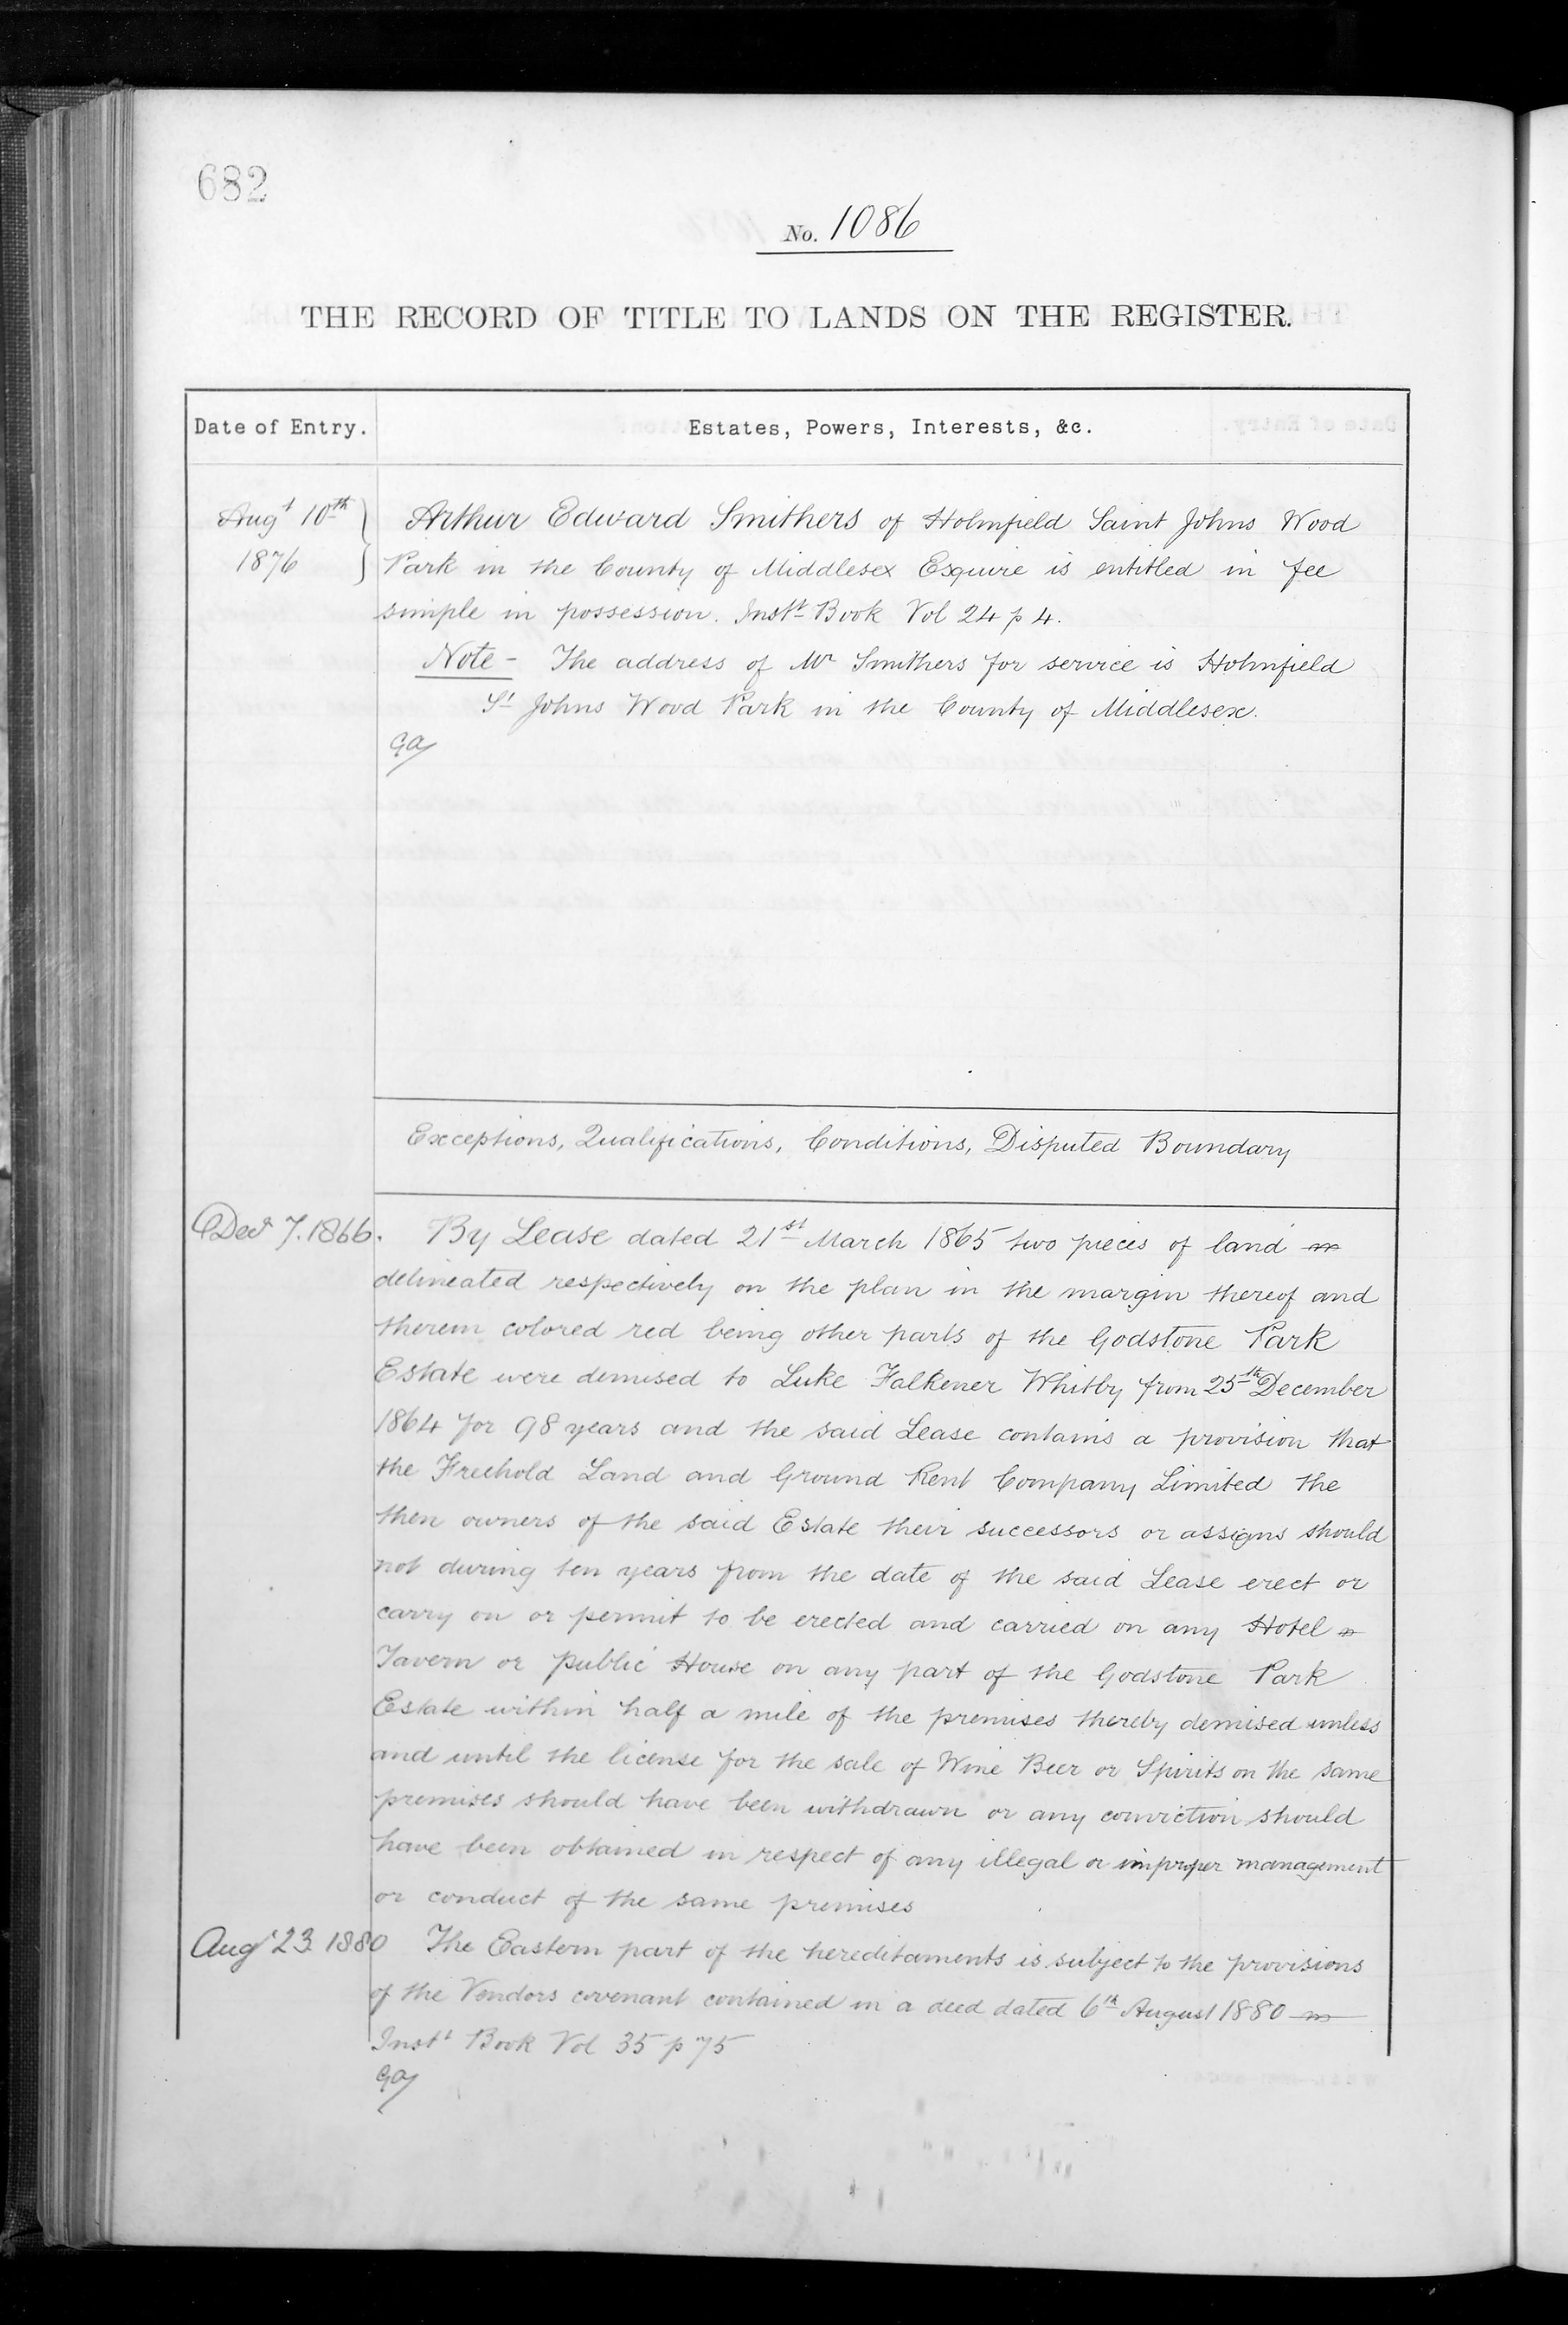 682
No. 1086
THE RECORD OF TITLE TO LANDS ON THE REGISTER.
Date of Entry.
Estates, Powers, Interests, &c.
Augt 10th
1876
Arthur Edward Smithers of Holmfield Saint Johns Wood
Park in the County of Middlesex Esquire is entitled in fee
simple in possession. Instt Book Vol 24 p 4.
Note - The address of Mr Smithers for service is Holmfield
St Johns Wood Park in the County of Middlesex.
GA
Exceptions, Qualifications, Conditions, Disputed Boundary
Decr 7. 1866.
By Lease dated 21st March 1865 two pieces of land
delineated respectively on the plan in the margin thereof and
therein colored red being other parts of the Godstone Park
Estate were demised to Luke Falkener Whitby from 25th December
1864 for 98 years and the said Lease contains a provision that
the Freehold Land and Ground Rent Company Limited the
then owners of the said Estate their successors or assigns should
not during ten years from the date of the said Lease erect or
carry on or permit to be erected and carried on any Hotel
Tavern or Public House on any part of the Godstone Park
Estate within half a mile of the premises thereby demised unless
and until the license for the sale of Wine Beer or Spirits on the same
premises should have been withdrawn or any conviction should
have been obtained in respect of any illegal or improper management
or conduct of the same premises
Augt 23 1880
The Eastern part of the hereditaments is subject to the provisions
of the Vendors covenant contained in a deed dated 6th August 1880
Instt Book Vol 35 p 75
GA